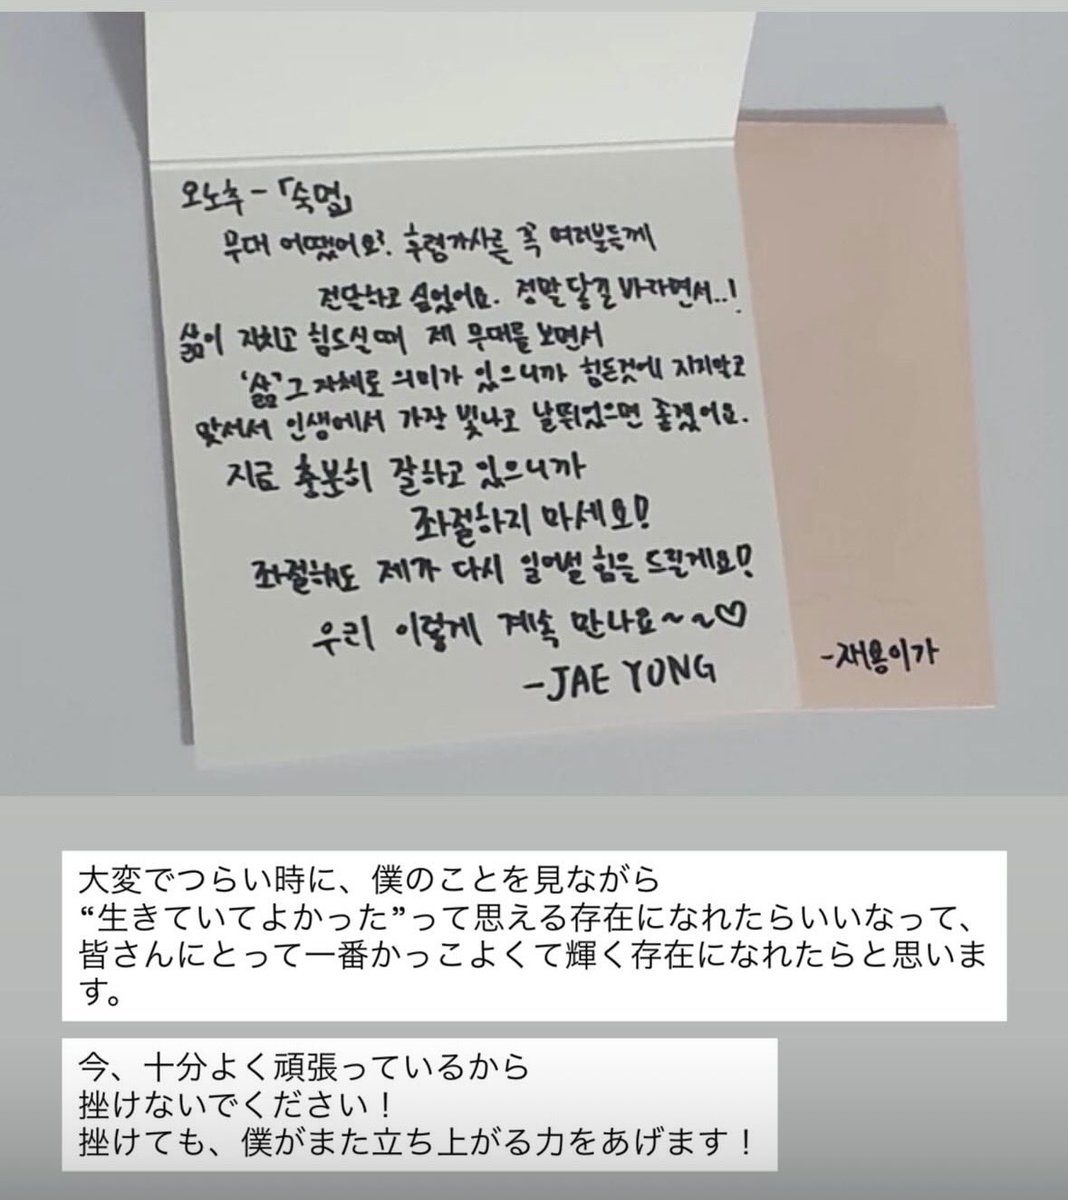 오노추 - 「숙명」
무대 어땠어요? 후렴가사를 꼭 여러분들께
전달하고 싶었어요. 정말 닿길 바라면서..!
삶이 지치고 힘드실 때 제 무대를 보면서
'삶' 그 자체로 의미가 있으니까 힘든것에 지지않고
맞서서 인생에서 가장 빛나고 날뛰었으면 좋겠어요.
지금 충분히 잘하고 있으니까
좌절하지 마세요!
좌절해도 제가 다시 일어설 힘을 드릴게요!
우리 이렇게 계속 만나요~~♡
-JAE YONG
-재용이가
大変でつらい時に、僕のことを見ながら
“生きていてよかった”って思える存在になれたらいいなって、
皆さんにとって一番かっこよくて輝く存在になれたらと思いま
す。
今、十分よく頑張っているから
挫けないでください！
挫けても、僕がまた立ち上がる力をあげます！